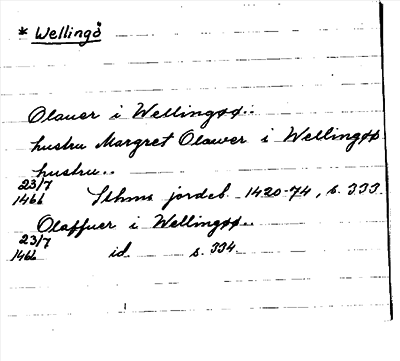 * Wellingö
Olauer i Wellingøø..
hustru Margret Olawer i Wellingøø
hustru..
23/7
1466 Sthms jordeb. 1420-74, s. 333.
Olaffuer i Wellingøø..
23/7
1466 id. s. 334.